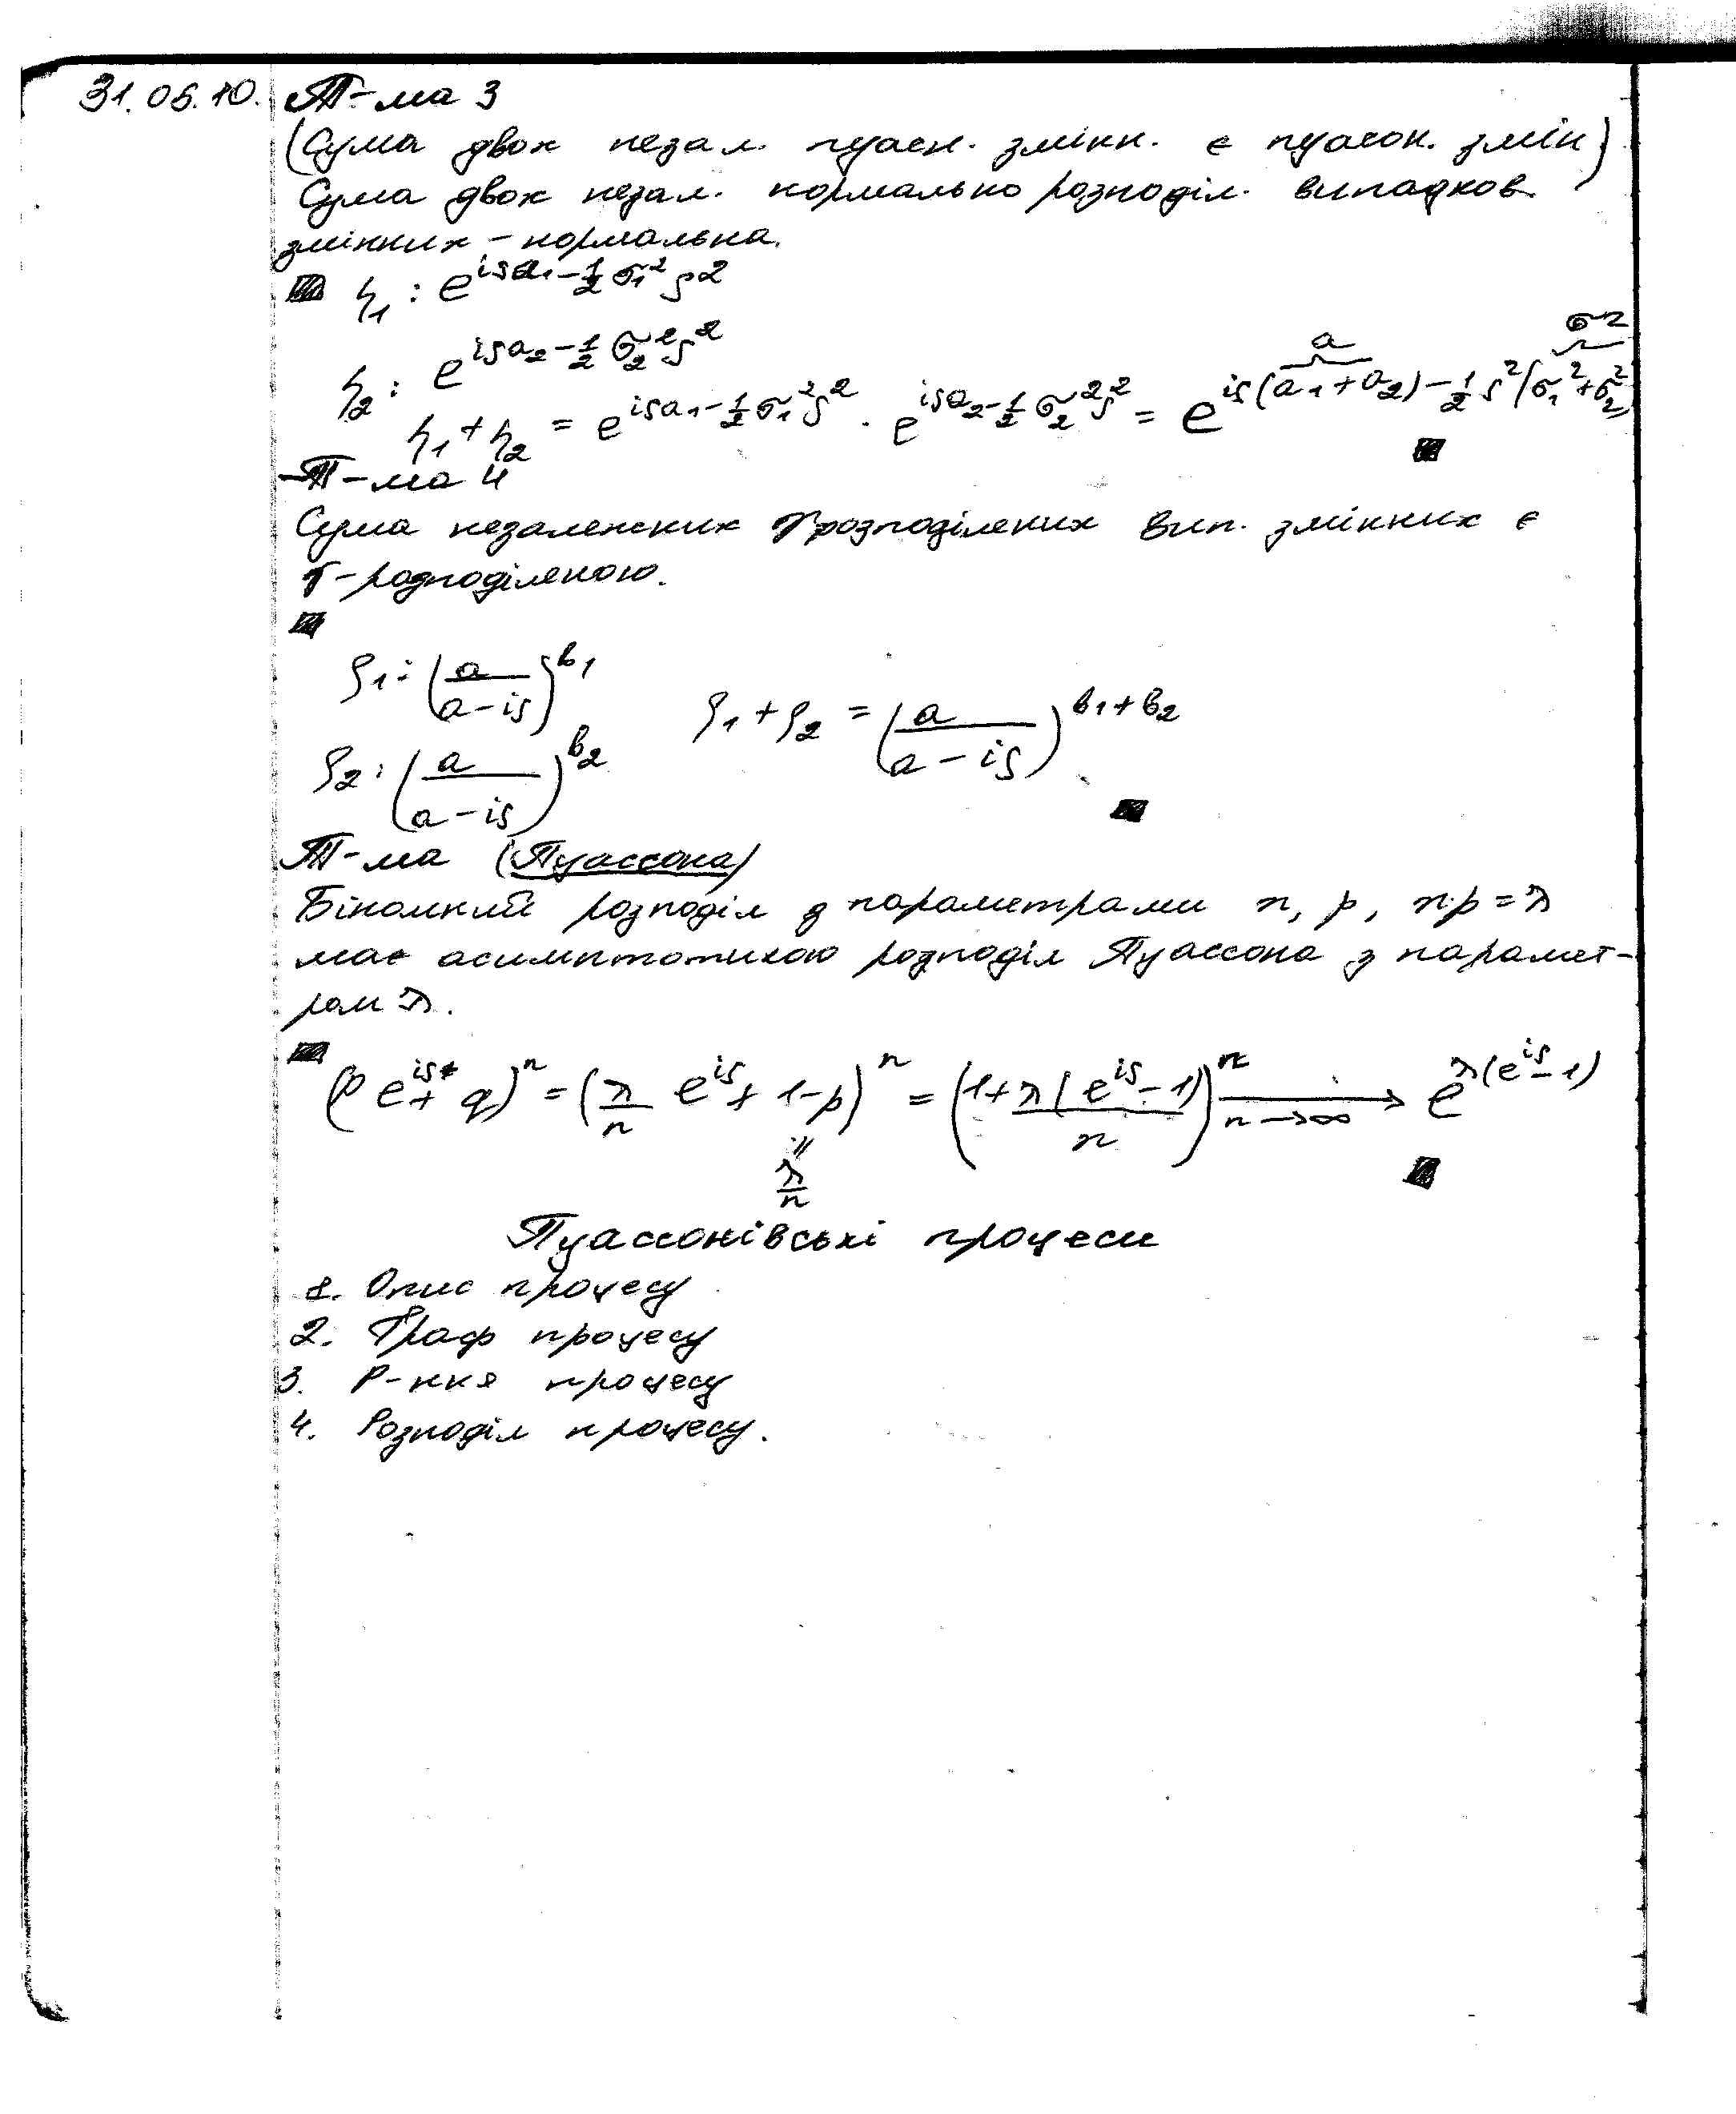 31.05.10. Т-ма 3
(Сума двох незал. пуасн. змінн. є пуасон. змін)
Сума двох незал. нормально розподіл. випадков.
змінних – нормальна.
ξ₁ : e^{isa₁ - ½σ₁²s²}
ξ₂ : e^{isa₂ - ½σ₂²s²}
ξ₁ + ξ₂ = e^{isa₁ - ½σ₁²s²} · e^{isa₂ - ½σ₂²s²} = e^{is(a₁+a₂) - ½s²(σ₁²+σ₂²)} a σ²
Т-ма 4
Сума незалежних Г розподілених вип. змінних є
Г-розподіленою.
ρ₁ : (a/(a-is))^{b₁}
ρ₁ + ρ₂ = (a/(a-is))^{b₁+b₂}
ρ₂ : (a/(a-is))^{b₂}
Т-ма (Пуассона)
Біномний розподіл з параметрами n, p, n·p = λ
має асимптотикою розподіл Пуассона з парамет-
ром λ.
(p e^{is} + q)^n = (λ/n e^{is} + 1-p)^n = (1 + λ(e^{is}-1)/n)^n → n→∞ e^{λ(e^{is}-1)}
"
λ/n
Пуассонівські процеси
1. Опис процесу
2. Граф процесу
3. Р-ння процесу
4. Розподіл процесу.